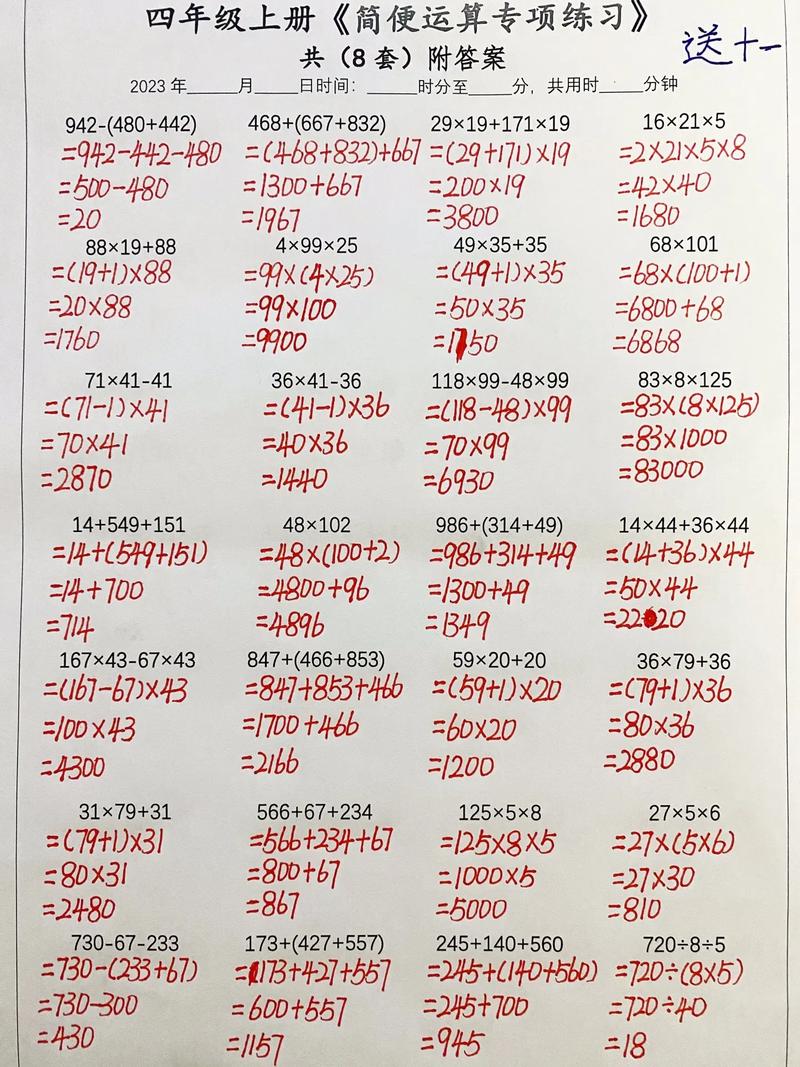 四年级上册《简便运算专项练习》
送十一
共（8套）附答案
2023年_____月_____日时间：_____时分至_____分，共用时_____分钟
942-(480+442) 468+(667+832) 29×19+171×19 16×21×5
=942-442-480 =(468+832)+667 =(29+171)×19 =2×21×5×8
=500-480 =1300+667 =200×19 =42×40
=20 =1967 =3800 =1680
88×19+88 4×99×25 49×35+35 68×101
=(19+1)×88 =99×(4×25) =(49+1)×35 =68×(100+1)
=20×88 =99×100 =50×35 =6800+68
=1760 =9900 =1750 =6868
71×41-41 36×41-36 118×99-48×99 83×8×125
=(71-1)×41 =(41-1)×36 =(118-48)×99 =83×(8×125)
=70×41 =40×36 =70×99 =83×1000
=2870 =1440 =6930 =83000
14+549+151 48×102 986+(314+49) 14×44+36×44
=14+(549+151) =48×(100+2) =986+314+49 =(14+36)×44
=14+700 =4800+96 =1300+49 =50×44
=714 =4896 =1349 =2220
167×43-67×43 847+(466+853) 59×20+20 36×79+36
=(167-67)×43 =847+853+466 =(59+1)×20 =(79+1)×36
=100×43 =1700+466 =60×20 =80×36
=4300 =2166 =1200 =2880
31×79+31 566+67+234 125×5×8 27×5×6
=(79+1)×31 =566+234+67 =125×8×5 =27×(5×6)
=80×31 =800+67 =1000×5 =27×30
=2480 =867 =5000 =810
730-67-233 173+(427+557) 245+140+560 720÷8÷5
=730-(233+67) =173+427+557 =245+(140+560) =720÷(8×5)
=730-300 =600+557 =245+700 =720÷40
=430 =1157 =945 =18